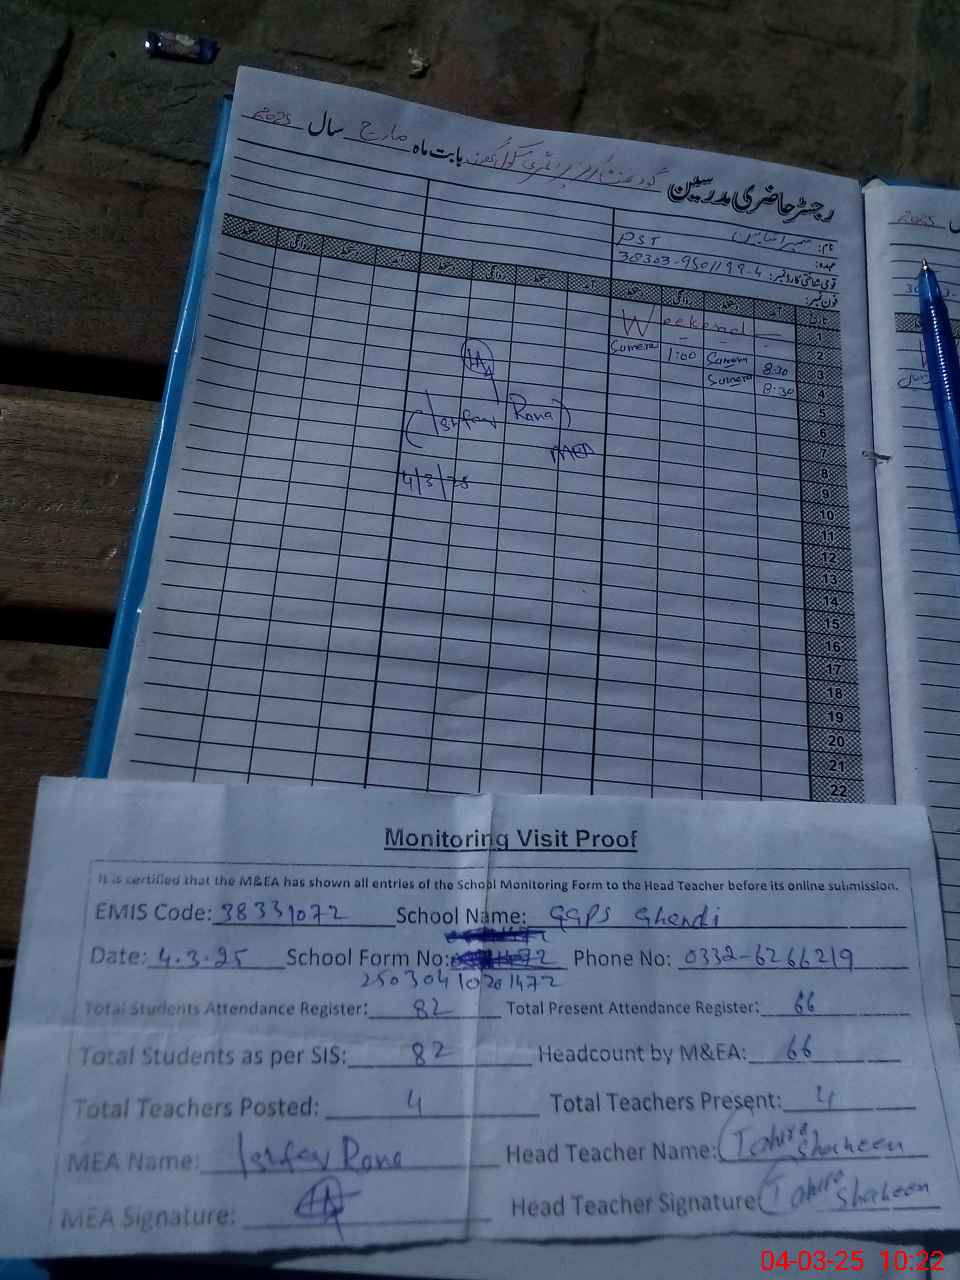 رجسٹر حاضری مدرسین گورنمنٹ گرلز پرائمری سکول بابت ماہ مارچ سال 2025
نام: سمیرا
عہدہ: PST
قومی شناختی کارڈ نمبر: 38303-9501199-4
فون نمبر:
تاریخ آمد دستخط روانگی دستخط آمد دستخط روانگی دستخط آمد دستخط روانگی دستخط
1 Weekend
2 - - - -
3 8:30 Sumera 1:00 Sumera
4 8:30 Sumera
5
6
7
8
9
10
11
12
13
14
15
16
17
18
19
20
21
22
(Irfan Rana)
MEA
4/3/25
2025
Monitoring Visit Proof
It is certified that the M&EA has shown all entries of the School Monitoring Form to the Head Teacher before its online submission.
EMIS Code: 38331072 School Name: GGPS Ghandi
Date: 4.3.25 School Form No: Phone No: 0332-6266219
Total Students Attendance Register: 82 Total Present Attendance Register: 66
Total Students as per SIS: 82 Headcount by M&EA: 66
Total Teachers Posted: 4 Total Teachers Present: 4
MEA Name: Irfan Rana Head Teacher Name: Tahira Shaheen
MEA Signature: Head Teacher Signature: Tahira Shaheen
04-03-25 10:22